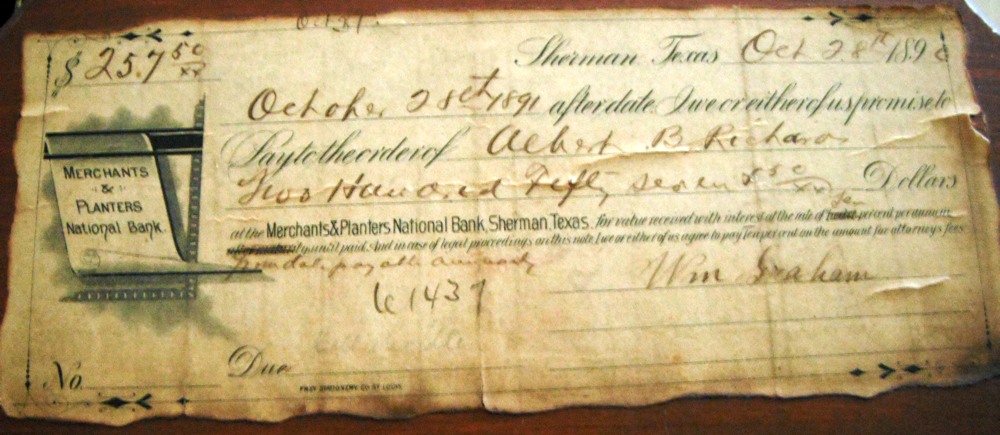 Oct 31.
$ 257 50/xx
Sherman Texas Oct 28th 1890
October 28th 1891 after date I we or either of us promise to
Pay to the order of Albert B. Richards
Two Hundred Fifty seven & 50/xx Dollars
at the Merchants & Planters National Bank, Sherman, Texas. for value received with interest at the rate of ten per cent per annum
until paid. And in case of legal proceedings on this note, I we or either of us agree to pay Ten per cent on the amount for attorneys fees
from date payable annually
Wm Graham
61437
MERCHANTS
&
PLANTERS
National Bank.
No.
Due